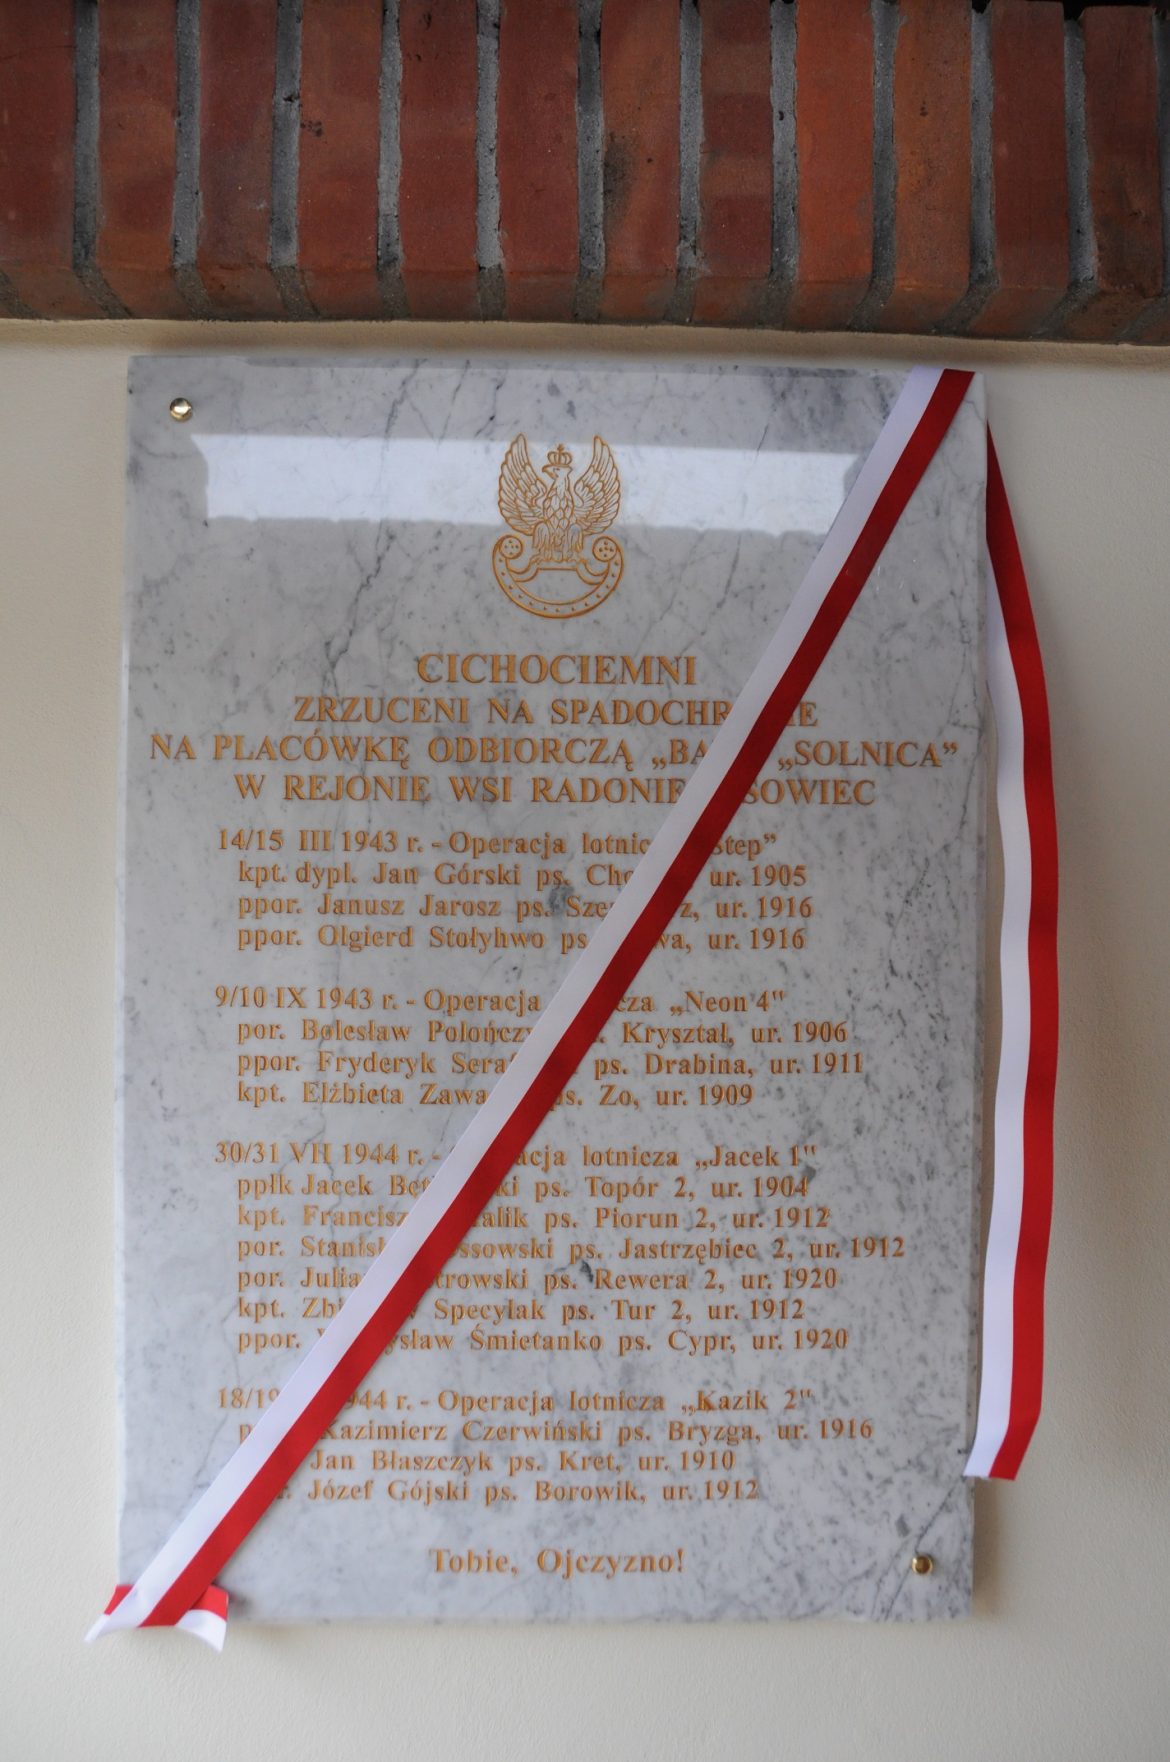 CICHOCIEMNI
ZRZUCENI NA
NA PLACÓWKĘ ODBIORCZĄ „SOLNICA”
W REJONIE WSI
14/15 III 1943 r. - Operacja
kpt. dypl. Jan Górski ps. ur. 1905
ppor. Janusz Jarosz ps. ur. 1916
ppor. Olgierd Stołyhwo ps. ur. 1916
9/10 IX 1943 r. - Operacja „Neon 4"
por. Bolesław Kryształ, ur. 1906
ppor. Fryderyk ps. Drabina, ur. 1911
kpt. Elżbieta ps. Zo, ur. 1909
30/31 VII 1944 r. - lotnicza „Jacek 1"
ppłk Jacek ps. Topór 2, ur. 1904
kpt. ps. Piorun 2, ur. 1912
por. ps. Jastrzębiec 2, ur. 1912
por. ps. Rewera 2, ur. 1920
kpt. Specylak ps. Tur 2, ur. 1912
ppor. Śmietanko ps. Cypr, ur. 1920
r. - Operacja lotnicza „Kazik 2"
Kazimierz Czerwiński ps. Bryzga, ur. 1916
Jan Błaszczyk ps. Kret, ur. 1910
Józef Gójski ps. Borowik, ur. 1912
Tobie, Ojczyzno!